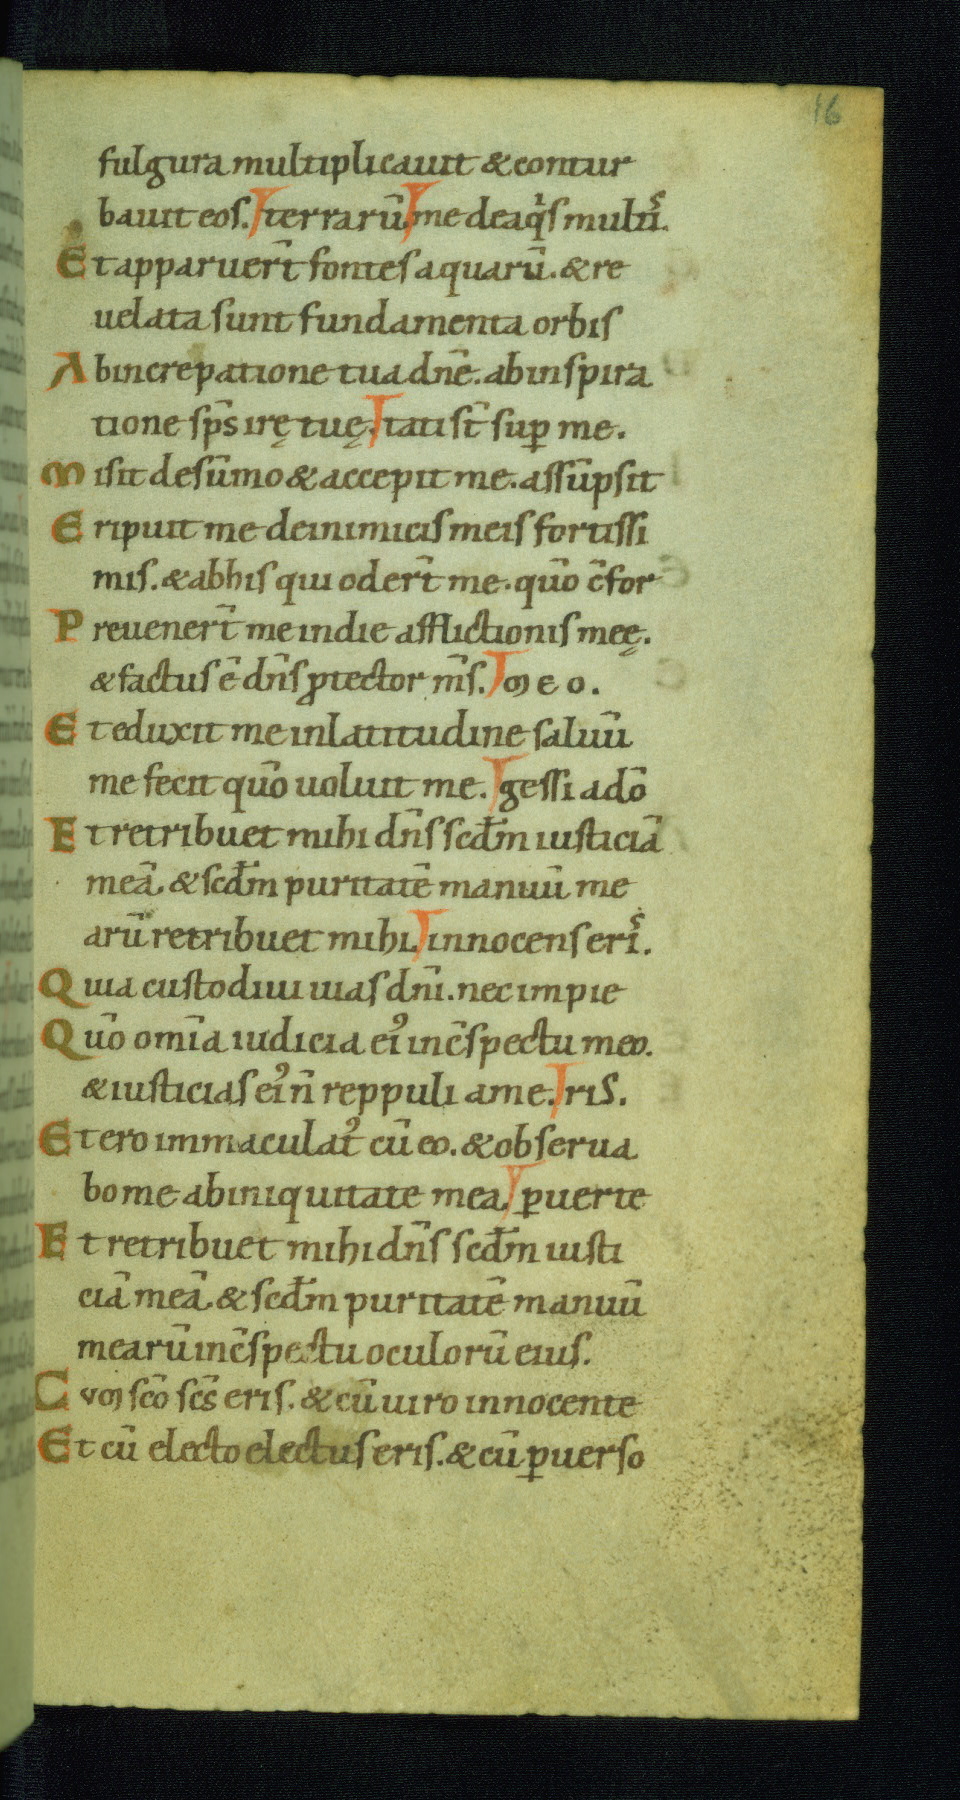 16
fulgura multiplicauit & contur
bauit eos. terrarū. me de aq̇s multı̄s.
Et apparuer̄t fontes aquarū. & re
uelata sunt fundamenta orbis
Ab increpatione tua dn̄e. ab inspira
tione sp̄s irę tuę. tati st̄ sup̱ me.
Misit de sūmo & accepit me. assūpsit
Eripuit me de inimicis meis fortissi
mis. & ab his qui oder̄t me. quō c̄for
Preuener̄t me in die afflictionis meę.
& factus ē dn̄s ꝓtector m̄s. meo.
Et eduxit me in latitudine saluū
me fecit quō uoluit me. gessi a dō
Et retribuet mihi dn̄s scđm iusticiā
meā. & scđm puritatē manuū me
arū retribuet mihi. innocens erı̄s.
Quia custodiui uias dn̄i. nec impie
Quō om̄ia iudicia ei᾽ in c̄spectu meo.
& iusticias ei᾽ n̄ reppuli a me. ris.
Et ero immaculat᾽ cū eo. & obserua
bo me ab iniquitate mea. ꝑuerte
Et retribuet mihi dn̄s scđm iusti
ciā meā. & scđm puritatē manuū
mearū in c̄spectu oculorū eius.
Cum scō scs̄ eris. & cū uiro innocente
Et cū electo electus eris. & cū ꝑuerso